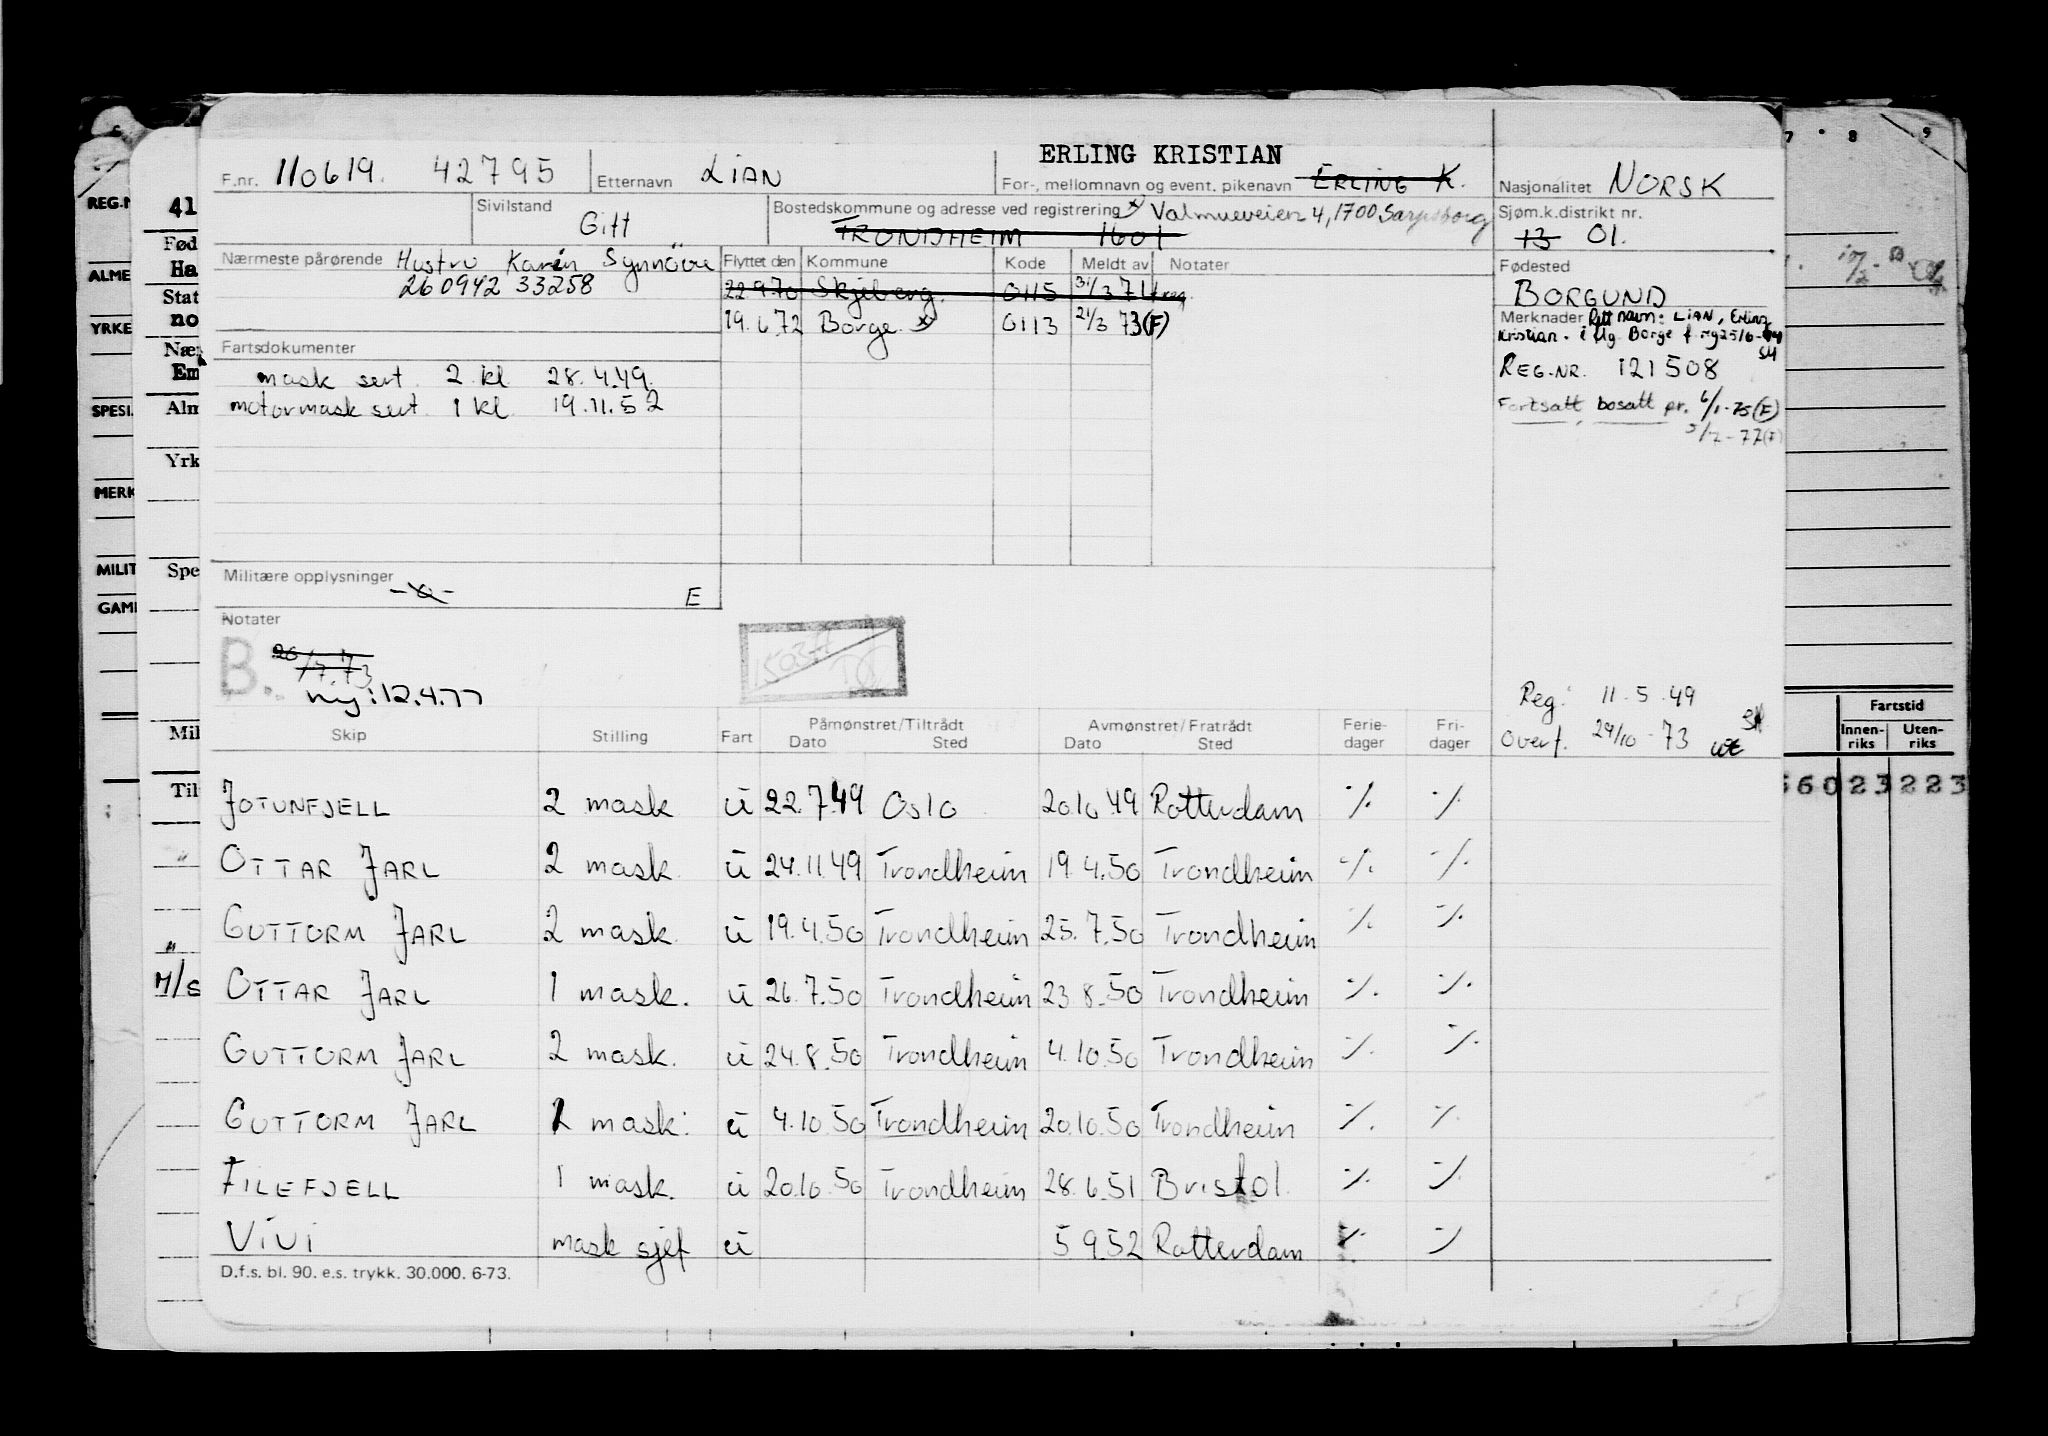 ERLING KRISTIAN
F.nr. 110619. 42795 Etternavn LIAN For-, mellomnavn og event. pikenavn ERLING K. Nasjonalitet NORSK
Sivilstand Gift Bostedskommune og adresse ved registrering x Valmueveien 4, 1700 Sarpsborg Sjøm.k.distrikt nr.
TRONDHEIM 1601 13 01.
Nærmeste pårørende Hustru Karin Synnöve Flyttet den Kommune Kode Meldt av Notater Fødested
260942 33258 22.9.70 Skjeberg. 0115 31/3 71 BORGUND
19.6.72 Borge x 0113 21/3 73(F) Merknader Rett navn: LIAN, Erling
Kristian. i flg. Borge f.
Fartsdokumenter
mask sert. 2 kl 28.4.49. REG.NR. 121508
motormask sert. 1 kl 19.11.52 Fortsatt bosatt pr. 6/1-75(F)
5/7-77(F)
Militære opplysninger E
Notater
B. 26/7.73
ny: 12.4.77
Reg: 11.5.49
Overf. 29/10-73
Skip Stilling Fart Påmønstret/Tiltrådt Dato Sted Avmønstret/Fratrådt Dato Sted Ferie-dager Fri-dager
JOTUNFJELL 2 mask ü 22.7.49 Oslo 20.10.49 Rotterdam ٪ ٪
OTTAR JARL 2 mask ü 24.11.49 Trondheim 19.4.50 Trondheim ٪ ٪
GUTTORM JARL 2 mask. ü 19.4.50 Trondheim 25.7.50 Trondheim ٪ ٪
OTTAR JARL 1 mask. ü 26.7.50 Trondheim 23.8.50 Trondheim ٪ ٪
GUTTORM JARL 2 mask. ü 24.8.50 Trondheim 4.10.50 Trondheim ٪ ٪
GUTTORM JARL mask. ü 4.10.50 Trondheim 20.10.50 Trondheim ٪ ٪
FILEFJELL 1 mask. ü 20.10.50 Trondheim 28.6.51 Bristol. ٪ ٪
VIVI mask sjef ü 5 9.52 Rotterdam ٪ ٪
D.f.s. bl. 90. e.s. trykk. 30.000. 6-73.
REG.N
ALME
YRKE
SPESI.
MERK
MILIT
GAML
41
Fød
Ha
Stat
no
Nær
Em
Alm
Yrk
Spe
Mil
Til
M/S
7 8 9
Fartstid
Innen-riks Uten-riks
56023223